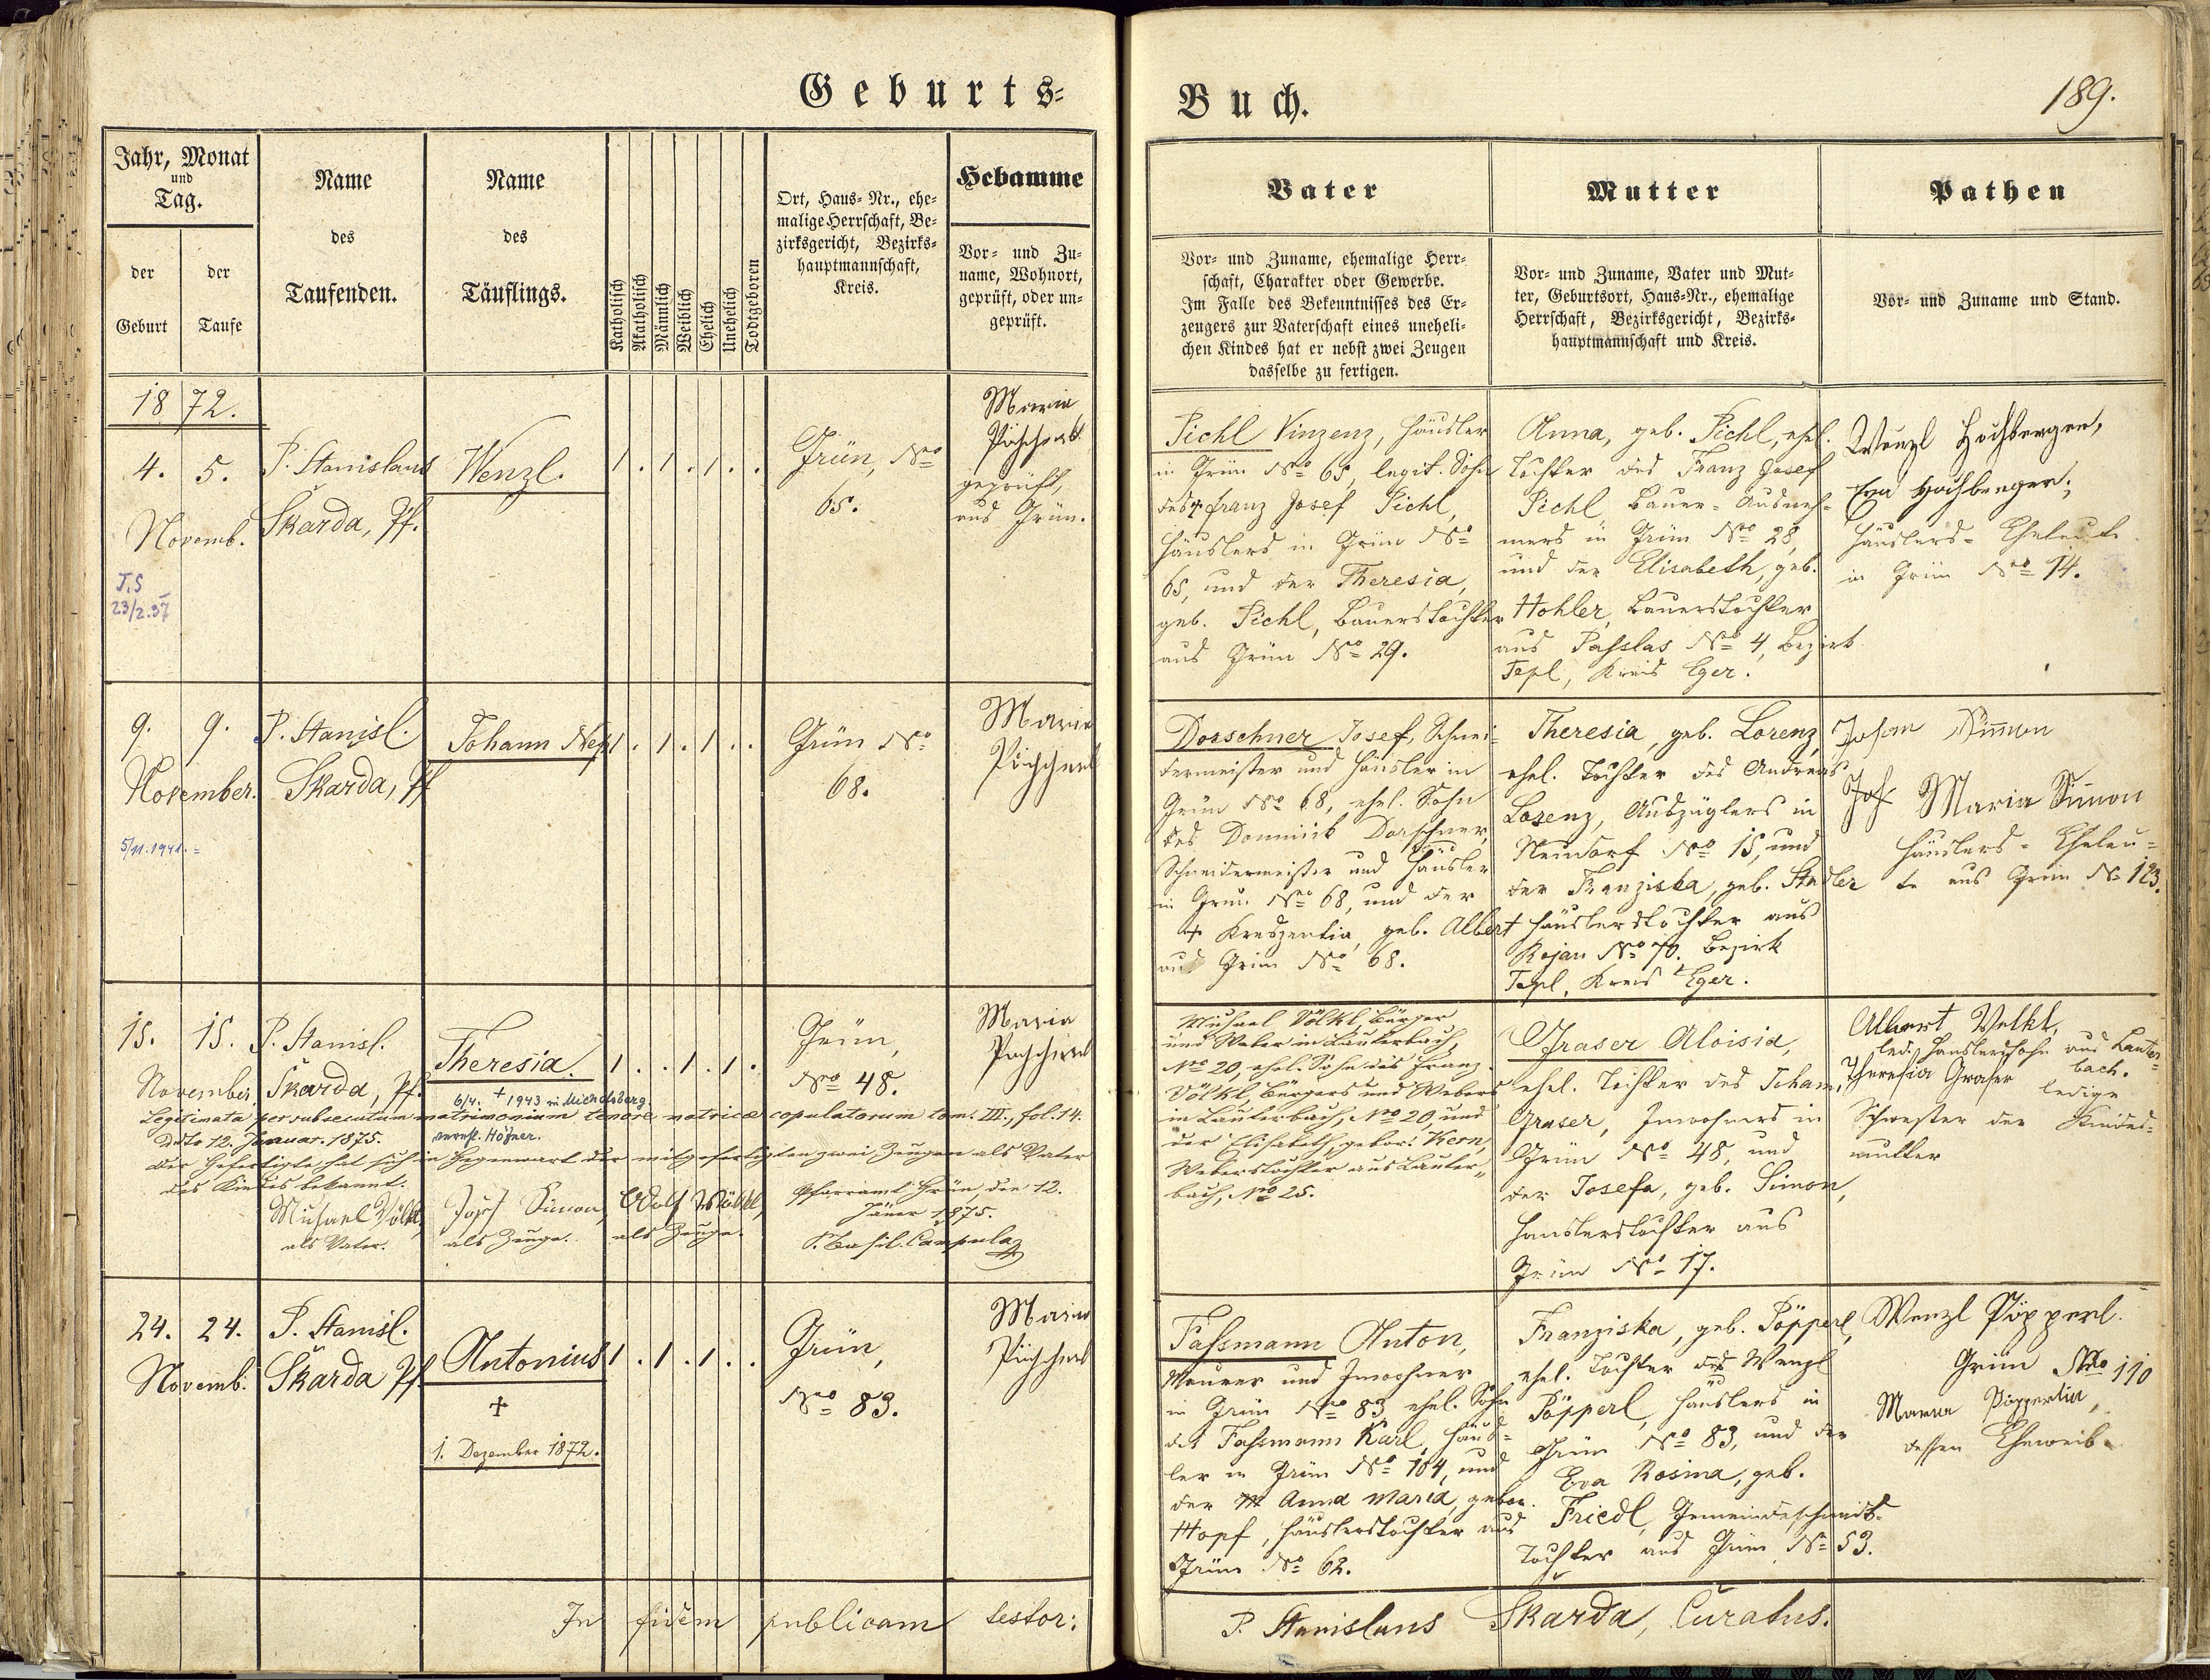 Geburts=
Jahr, Monat
und
Tag.
der
Geburt
der
Taufe
Name
des
Taufenden.
Name
des
Täuflings.
Katholisch
Akatholisch
Männlich
Weiblich
Ehelich
Unehelich
Todtgeboren
Ort, Haus-Nr., ehe=
malige Herrschaft, Be=
zirksgericht, Bezirks=
hauptmannschaft,
Kreis.
Hebamme
Vor- und Zu=
name, Wohnort,
geprüft, oder un=
geprüft.
1872.
4. 5.
Novemb.
J.S
23/2.37
P. Stanislaus
Skarda, Pf.
Wenzl.
1 . 1 . 1 . .
Grün, No
65.
Maria
geprüft,
aus Grün.
9. 9.
November.
5/11.1941.=
P. Stanisl.
Skarda, Pf
Johann Nep
1 . 1 . 1 . .
Grün No
68.
Maria
15. 15.
November
P. Stanisl.
Skarda, Pf.
Theresia.
6/4. + 1943 in Michelsberg.
1 . . 1 . 1 .
Grün,
No 48.
Maria
Legitimata per subsecutum matrimonium tenore matricae copulatorum tom. III., fol. 14.
ddto 12. Januar. 1875.
verehl. Höfner.
Der Gefertigte hat sich in Gegenwart der mitgefertigten zwei Zeugen als Vater
des Kindes bekannt:
Michael Völkl,
als Vater.
Josef Simon,
als Zeuge.
Adolf Völkl,
als Zeuge.
Pfarramt Grün, den 12.
Jäner 1875.
24. 24.
Novemb.
P. Stanisl.
Skarda Pf.
Antonius
+
1. Dezember 1872.
1 . 1 . 1 . .
Grün,
No 83.
Maria
In fidem publicam testor:
Buch.
189.
Vater
Vor- und Zuname, ehemalige Herr=
schaft, Charakter oder Gewerbe.
Im Falle des Bekenntnisses des Er=
zeugers zur Vaterschaft eines uneheli=
chen Kindes hat er nebst zwei Zeugen
dasselbe zu fertigen.
Mutter
Vor- und Zuname, Vater und Mut=
ter, Geburtsort, Haus-Nr., ehemalige
Herrschaft, Bezirksgericht, Bezirks=
hauptmannschaft und Kreis.
Pathen
Vor- und Zuname und Stand.
Pichl Vinzenz, Häusler
in Grün No 65, legit. Sohn
des + Franz Josef Pichl,
Häuslers in Grün No
65, und der Theresia,
geb. Pichl, Bauerstochter
aus Grün No 29.
Anna, geb. Pichl, ehel.
Tochter des Franz Josef
Pichl Bauer-Ausneh=
mers in Grün No 28,
und der Elisabeth, geb.
Hohler, Bauerstochter
aus Passlas No 4, Bezirk
Tepl, Kreis Eger.
Wenzl Hochberger,
Eva Hochberger,
Häuslers-Eheleute
in Grün No 14.
Dorschner Josef, Schnei=
dermeister und Häusler in
Grün No 68, ehel. Sohn
des Dominik Dorschner,
Schneidermeister und Häusler
in Grün No 68, und der
+ Kreszentia, geb. Albert
aus Grün No 68.
Theresia, geb. Lorenz,
ehel. Tochter des Andreas
Lorenz, Auszüglers in
Neudorf No 15, und
der Franziska, geb. Stadler
Häuslerstochter aus
Rojau No 70, Bezirk
Tepl, Kreis Eger.
Johan Simon
Maria Simon
Häuslers-Eheleu=
te aus Grün No 123.
Michael Völkl, Bürger
und Weber in Lauterbach,
No 20, ehel. Sohn des Franz
Völkl, Bürgers und Webers
in Lauterbach, No 20, und
der Elisabeth, gebor: Kern,
Weberstochter aus Lauter=
bach, No 25.
Graser Aloisia,
ehel. Tochter des Johann
Graser, Inwohners in
Grün No 48, und
der Josefa, geb. Simon,
Häuslerstochter aus
Grün No 17.
Albert Velkl,
led. Häuslerssohn aus Lauter=
bach.
Theresia Graser ledige
Schwester der Kindes=
mutter
Fassmann Anton,
Maurer und Inwohner
in Grün No 83 ehel. Sohn
des Fassmann Karl, Häus=
ler in Grün No 104, und
der Anna Maria, gebor.
Hopf, Häuslerstochter aus
Grün No 62.
Franziska, geb. Pöpperl,
ehel. Tochter des Wenzl
Pöpperl, Häuslers in
Grün No 83, und der
Eva Rosina, geb.
Friedl, Gemeindeschmids=
Tochter aus Grün No 53.
Wenzl Pöpperl.
Grün No 110
Maria Pöpperlin,
dessen Eheweib.
P. Stanislaus Skarda, Curatus.